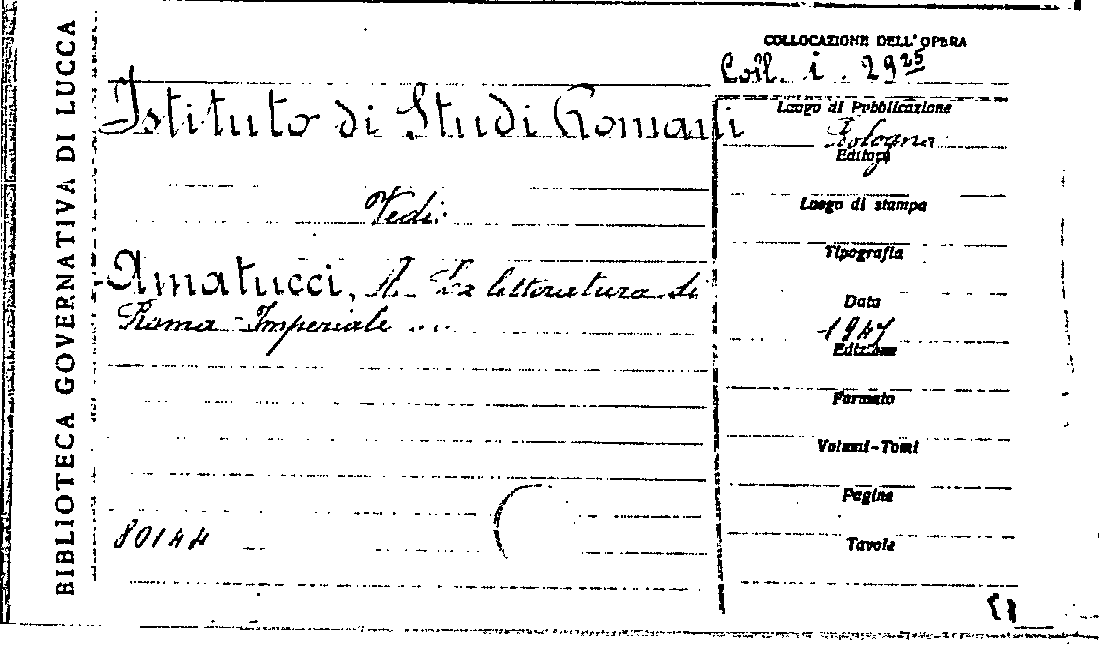 BIBLIOTECA GOVERNATIVA DI LUCCA
COLLOCAZIONE DELL'OPERA
Coll. i. 29 25
Istituto di Studi Romani
Vedi:
Amatucci, A. La letteratura di
Roma Imperiale ...
80144
Luogo di Pubblicazione
Bologna
Editore
Luogo di stampa
Tipografia
Data
1947
Edizione
Formato
Volumi-Tomi
Pagine
Tavole